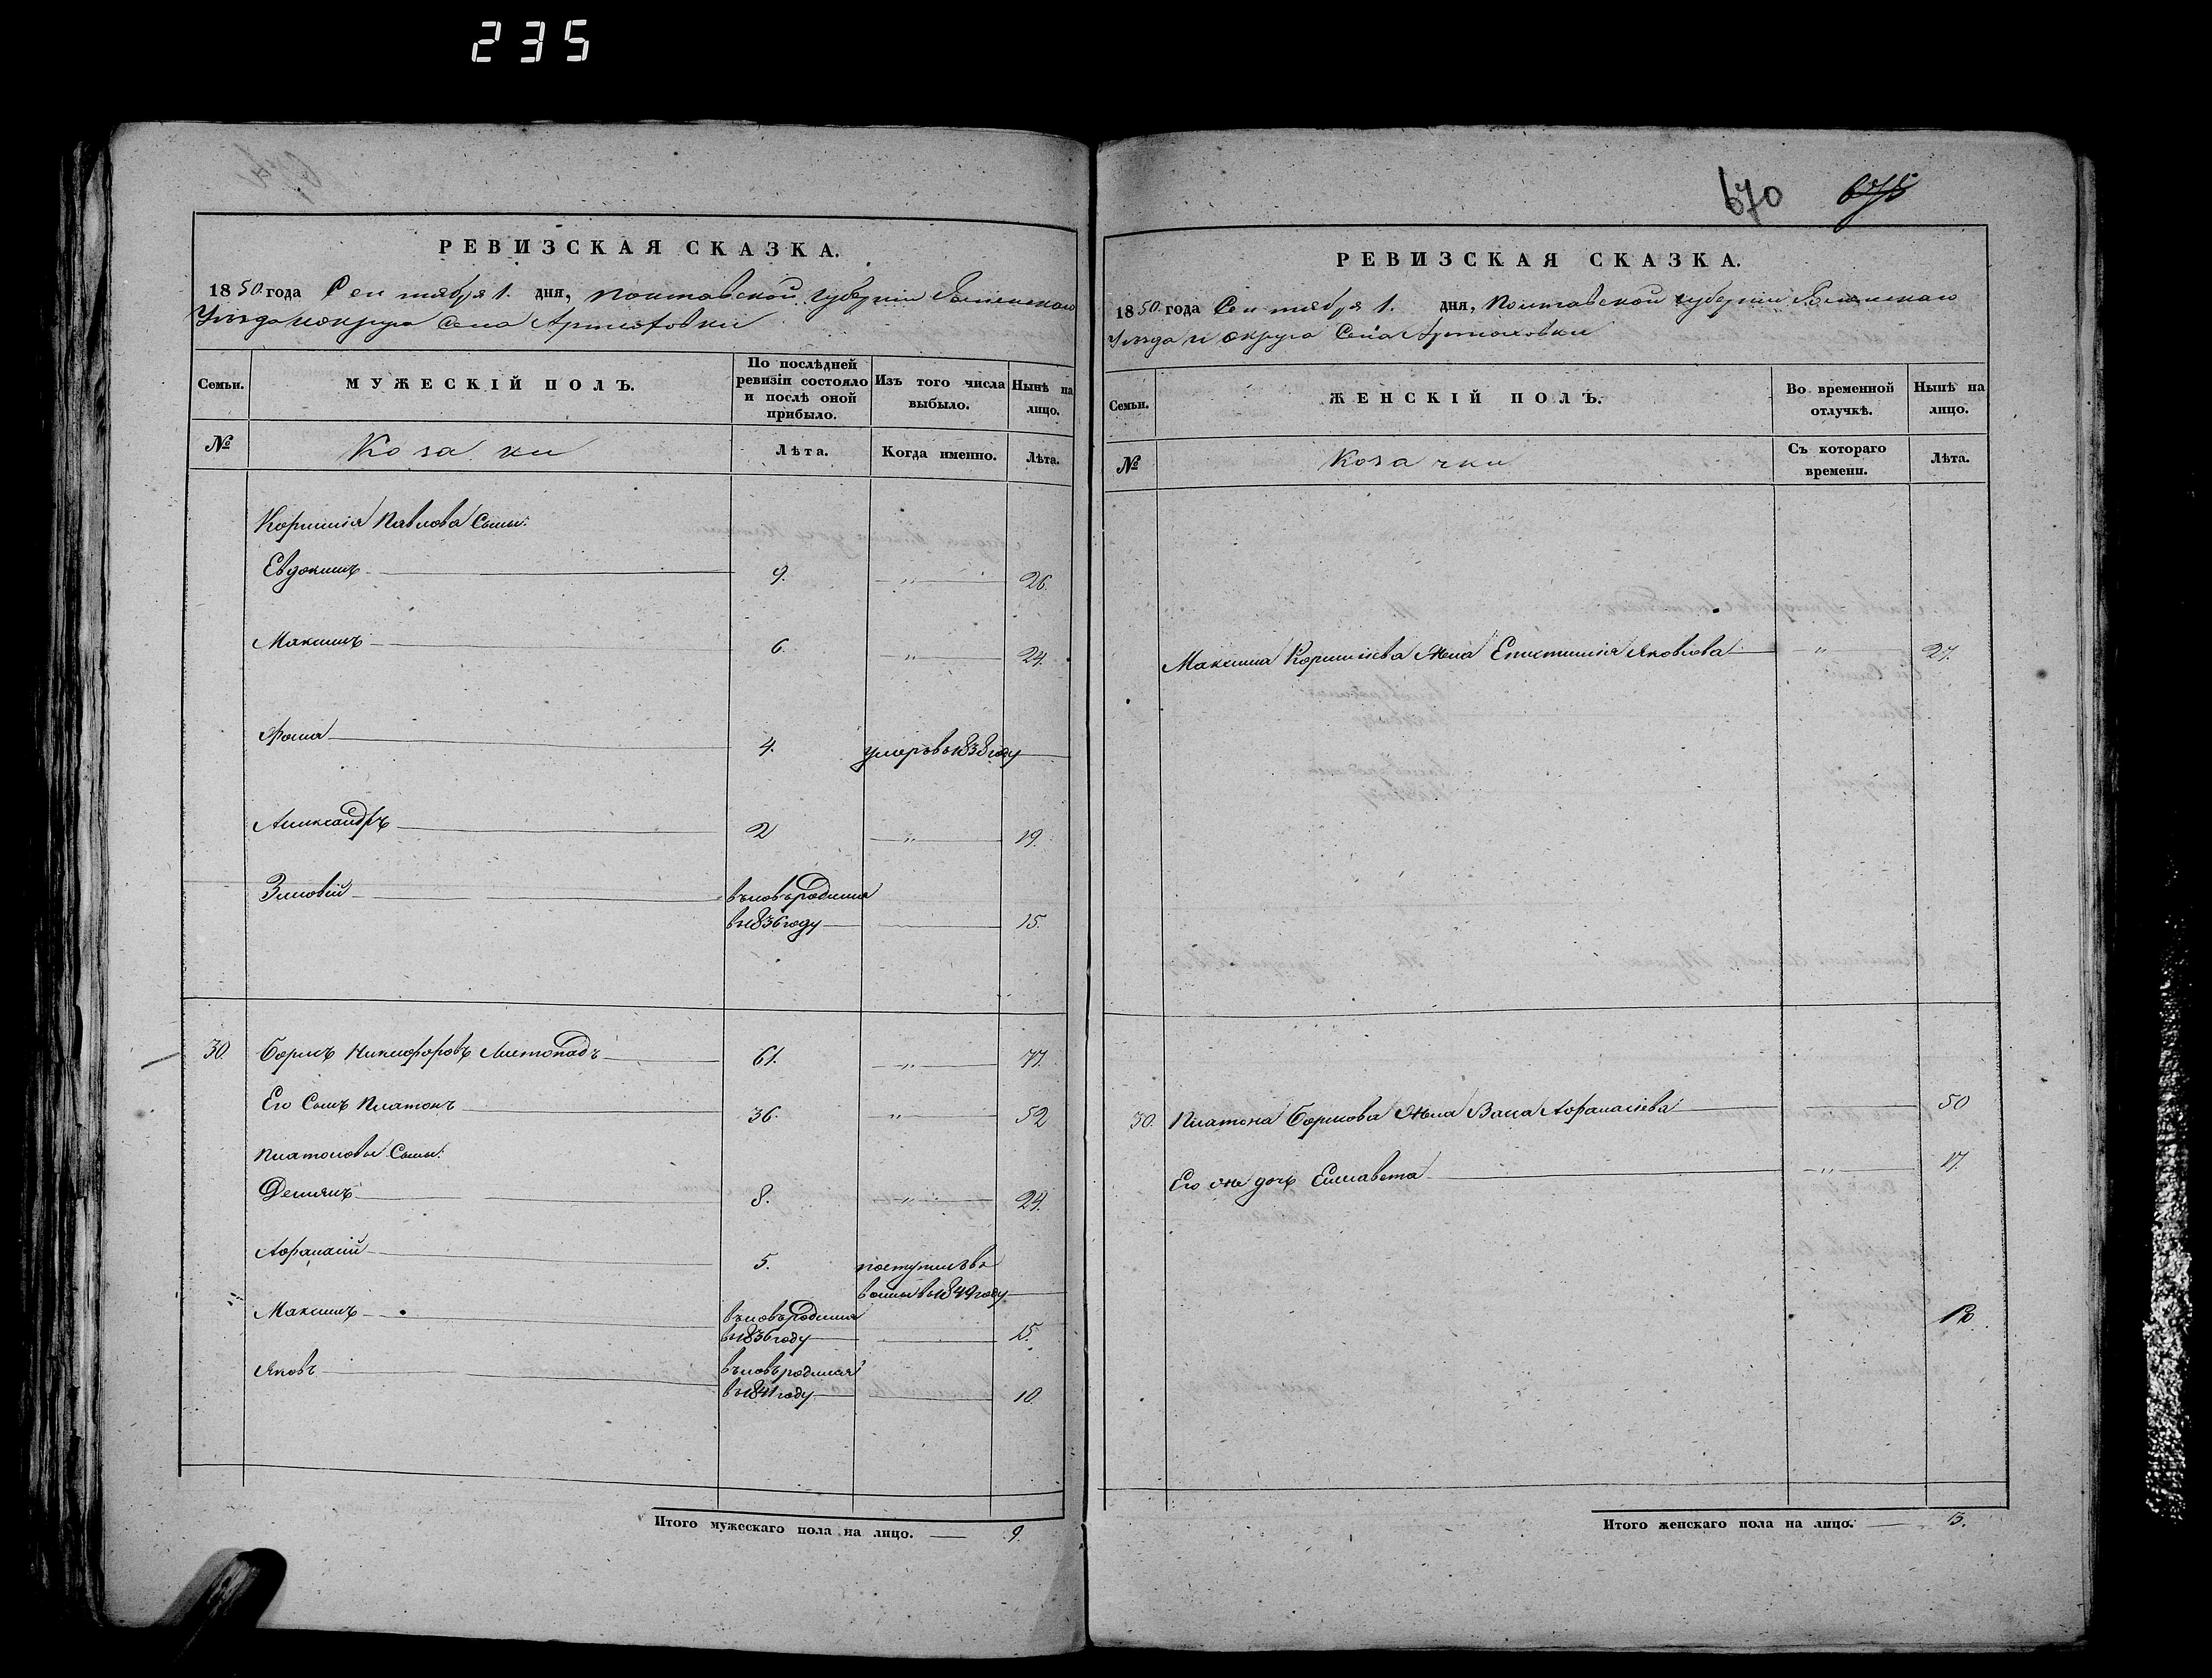 235
670 675
РЕВИЗСКАЯ СКАЗКА.
1850 года Сентября 1. дня, Полтавской губернии Роменскаго
Уезда и округа Села Артюховки
Семьи. МУЖЕСКІЙ ПОЛЪ. По послѣдней ревизіи состояло и послѣ оной прибыло. Изъ того числа выбыло. Нынѣ на лицо.
№ Козаки Лѣта. Когда именно. Лѣта.
Корнилія Павлова Сыны:
Евдокимъ 9. " 26.
Максимъ 6. " 24.
Фома 4. умеръ въ 1838 году
Александръ 2 " 19.
Зиновій въновь родился
въ 1836 году 15.
30. Борисъ Никифоровъ Листопадъ 61. " 77.
Его Сынъ Платонъ 36. " 52
Платоновы Сыны:
Демянъ 8. " 24.
Афанасій 5. поступилъ въ
воины въ 1849 году
Максимъ въновь родился
въ 1836 году 15.
Яковъ въновь родился
въ 1841 году 10.
Итого мужескаго пола на лицо. 9.
РЕВИЗСКАЯ СКАЗКА.
1850 года Сентября 1. дня, Полтавской губернии Роменскаго
Уезда и округа Села Артюховки
Семьи. ЖЕНСКІЙ ПОЛЪ. Во временной отлучкѣ. Нынѣ на лицо.
№ Козачки Съ котораго времени. Лѣта.
Максима Корниліева Жена Епистимія Яковлева " 27.
30. Платона Борисова Жена Васа Афанасіева 50
Его же дочь Елисавета " 17.
Итого женскаго пола на лицо. 3.